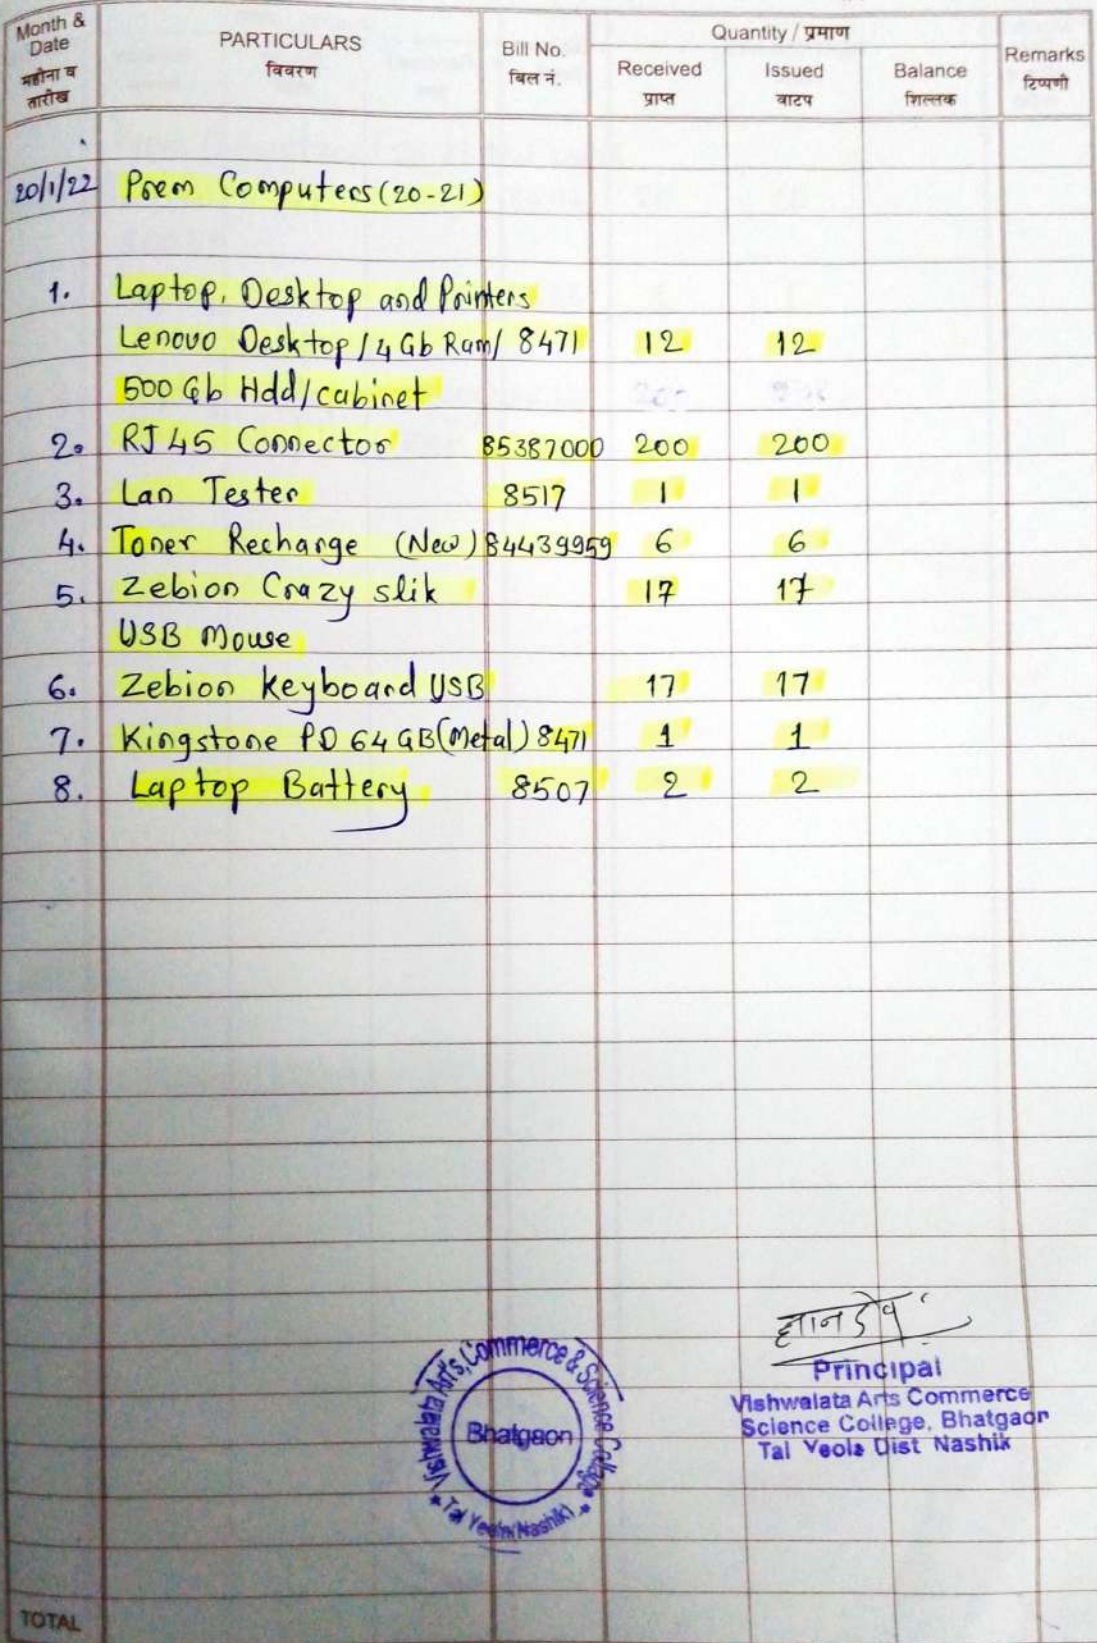 Month & Date महीना व तारीख PARTICULARS विवरण Bill No. बिल नं. Quantity / प्रमाण Remarks टिप्पणी
Received प्राप्त Issued वाटप Balance शिल्लक
20/1/22 Prem Computers (20-21)
1. Laptop, Desktop and Printers
Lenovo Desktop / 4 Gb Ram/ 8471 12 12
500 Gb Hdd/cabinet
2. RJ 45 Connector 85387000 200 200
3. Lan Tester 8517 1 1
4. Toner Recharge (New) 84439959 6 6
5. Zebion Crazy slik 17 17
USB Mouse
6. Zebion keyboard USB 17 17
7. Kingstone PD 64 GB (Metal) 8471 1 1
8. Laptop Battery 8507 2 2
Vishwalata Art's, Commerce & Science College
Bhatgaon
Tal Yeola (Nashik)
Principal
Vishwalata Arts Commerce
Science College, Bhatgaon
Tal Yeola Dist Nashik
TOTAL